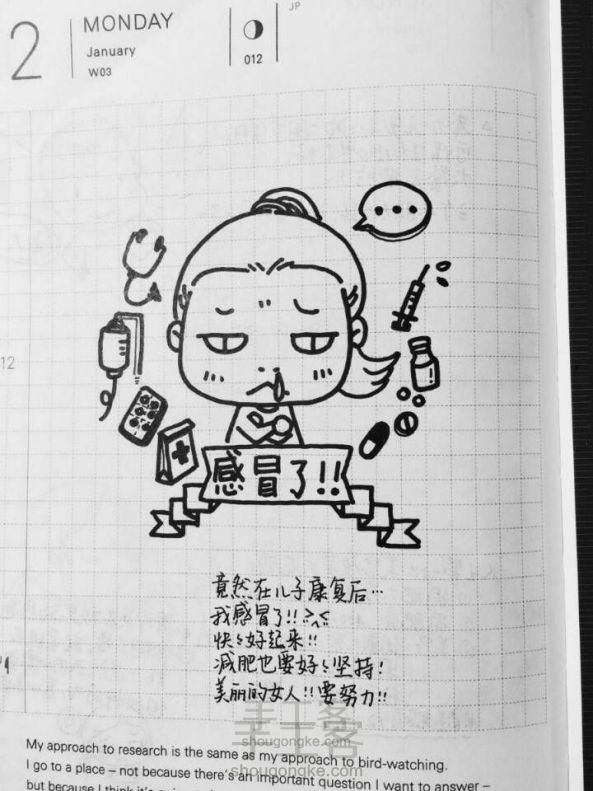 2
MONDAY
January
W03
012
JP
12
感冒了!!
竟然在儿子康复后…
我感冒了!! >_<
快快好起来!!
减肥也要好好坚持!
美丽的女人!!要努力!!
手工客
shougongke.com
shougongke.com
My approach to research is the same as my approach to bird-watching.
I go to a place – not because there's an important question I want to answer –